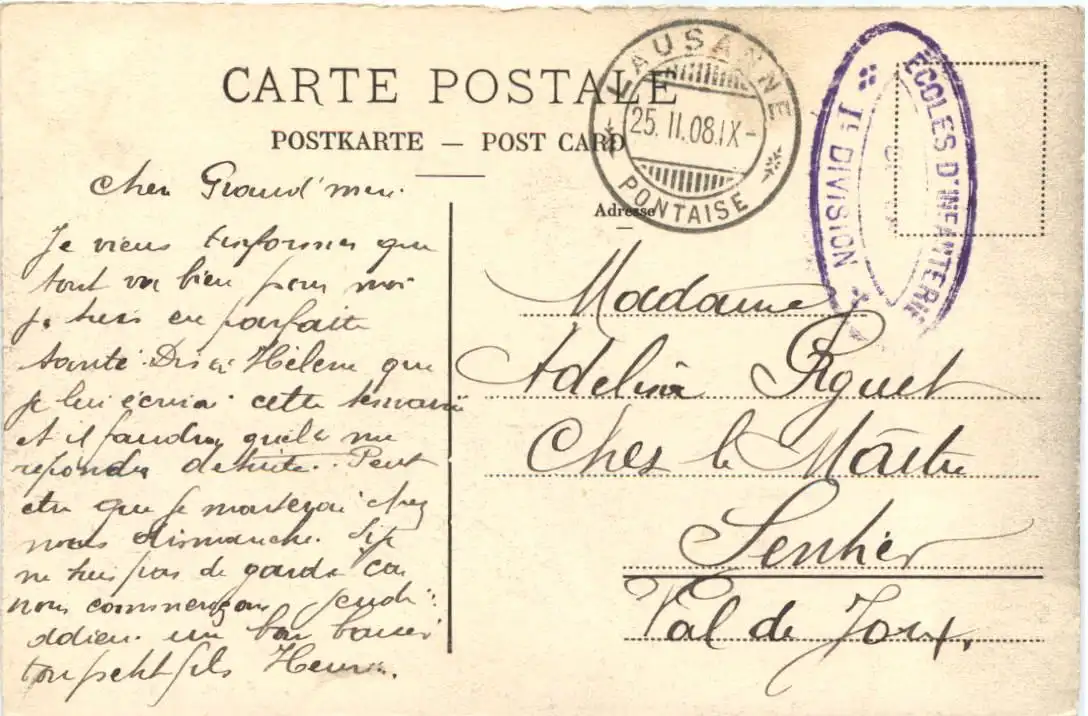 CARTE POSTALE
POSTKARTE — POST CARD
Adresse
LAUSANNE
25. II. 08. IX-
PONTAISE
ECOLES D'INFANTERIE
Iᵉ DIVISION
Cher Grand'mère
Je viens t'informer que
tout va bien pour moi
je suis en parfaite
santé. Dis à Hélène que
je lui écrirai cette semaine
et il faudra qu'elle me
réponde de suite. Peut
etre que je monterai chez
nous dimanche. Si je
ne suis pas de garde car
nous commençons jeudi
adieu. un bon baiser
ton petit fils Henri.
Madame
Adeline Piguet
Chez le Maître
Sentier
Val de Joux.